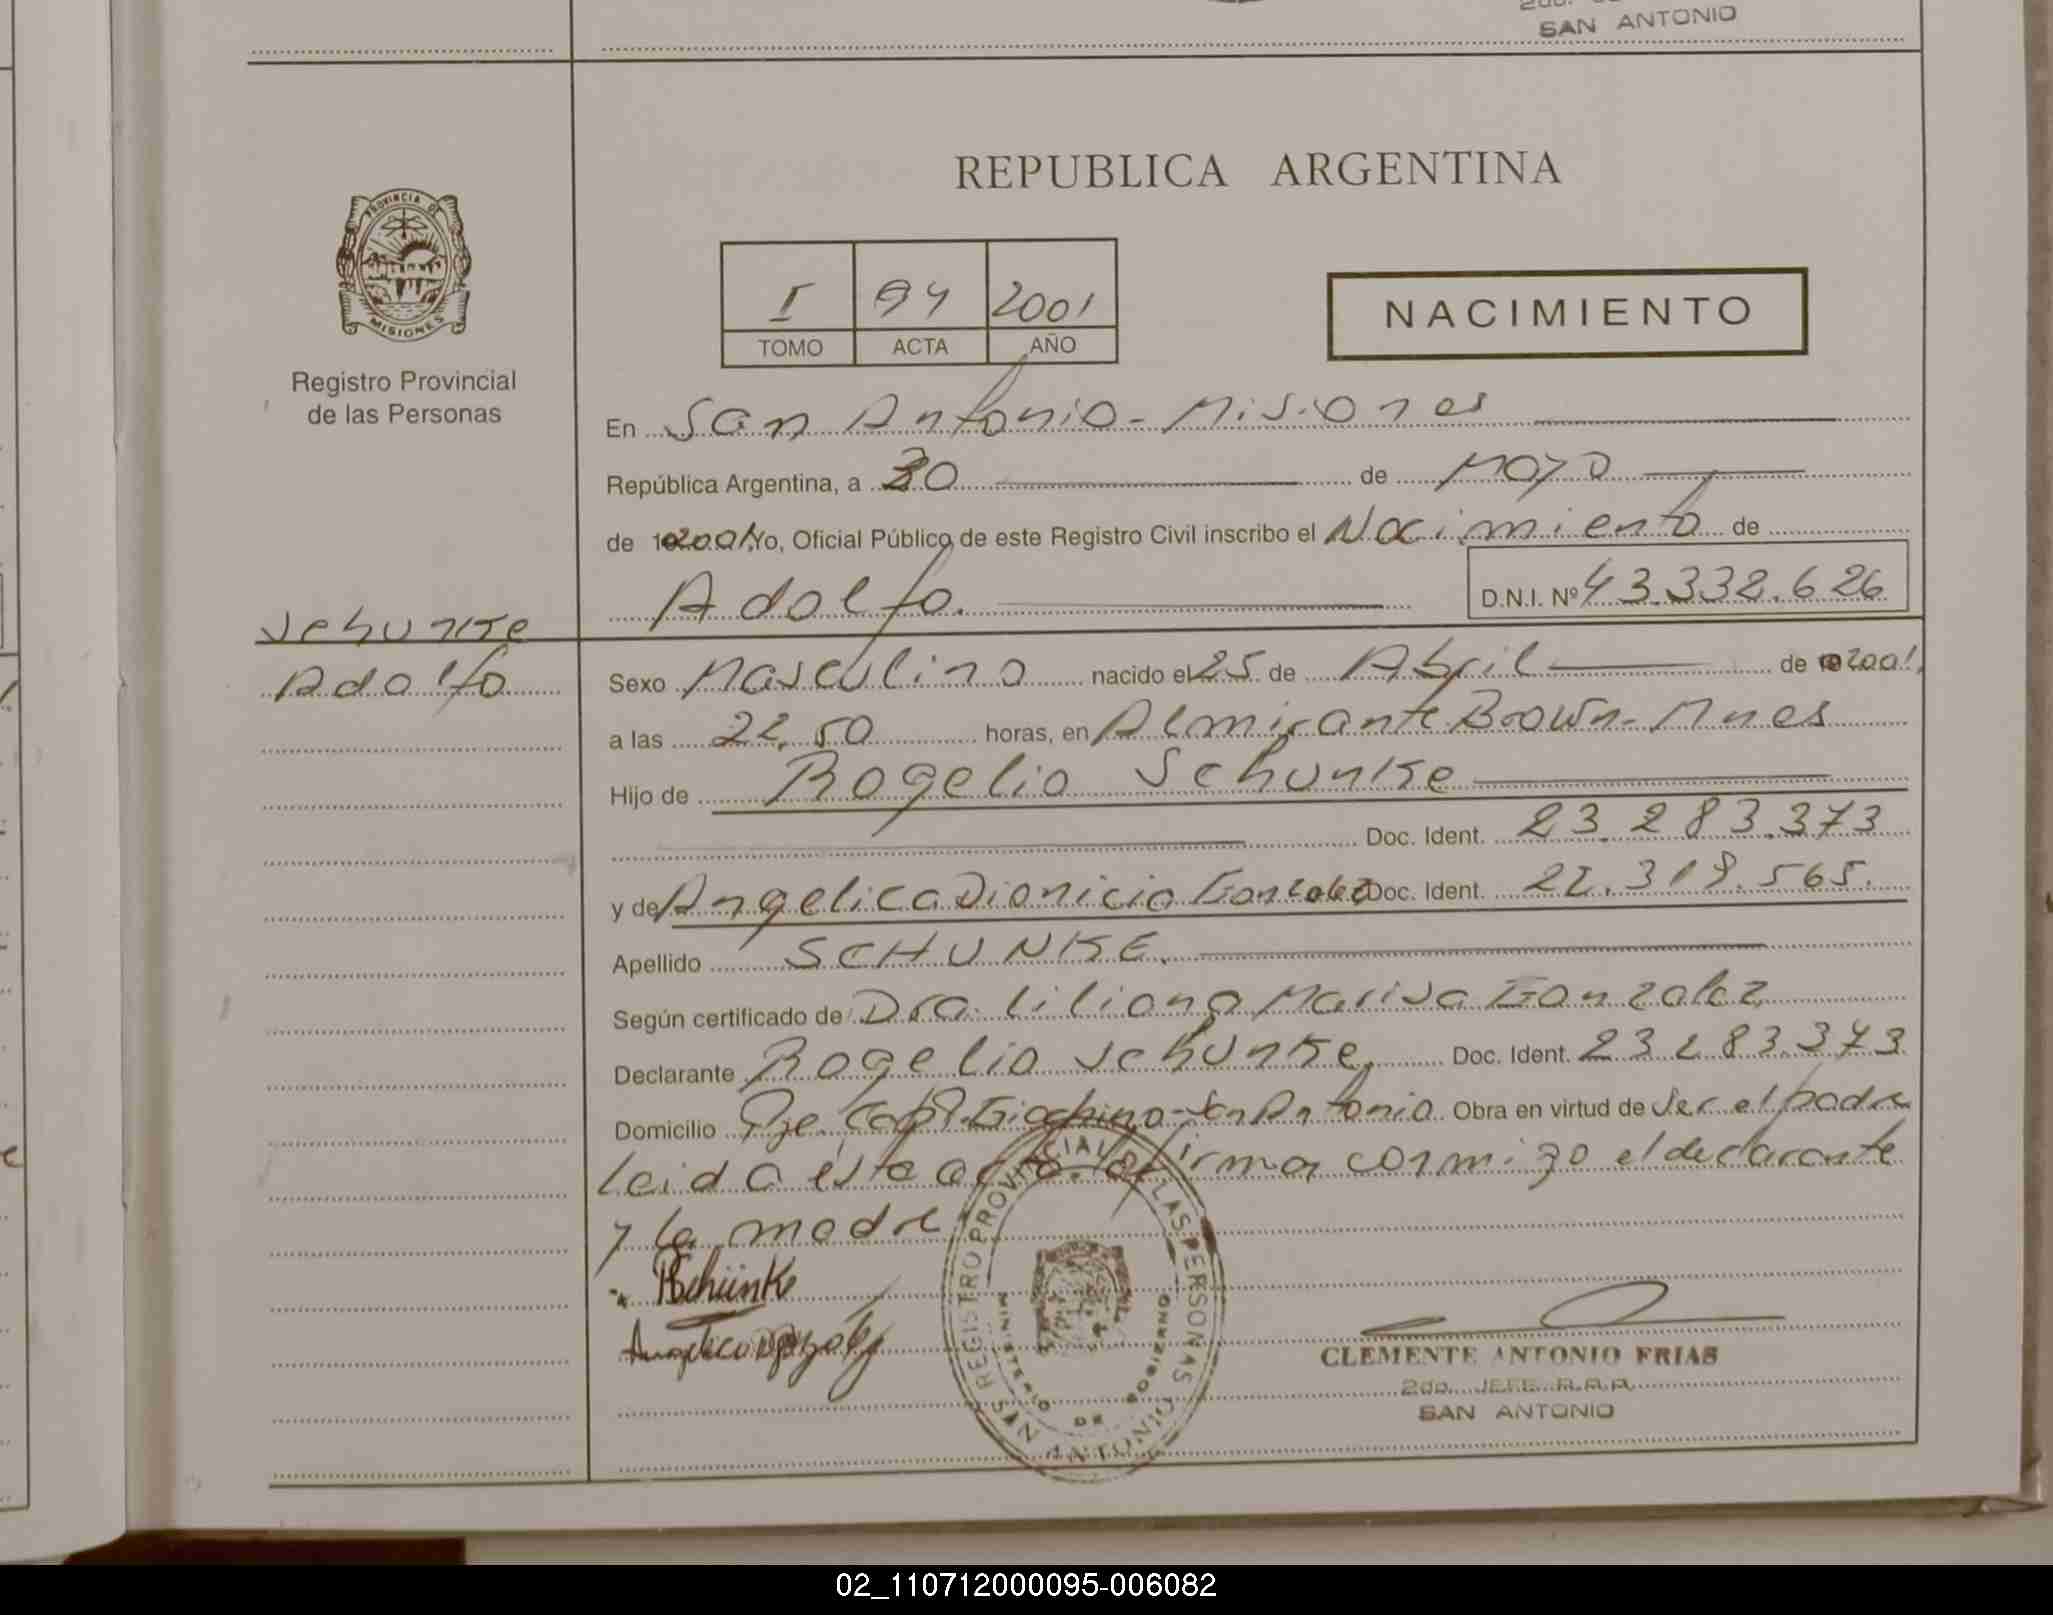 SAN ANTONIO
REPUBLICA ARGENTINA
PROVINCIA DE
MISIONES
I 94 2001
TOMO ACTA AÑO
NACIMIENTO
Registro Provincial
de las Personas
En San Antonio - Misiones
República Argentina, a 30 de Mayo
de 2001 Yo, Oficial Público de este Registro Civil inscribo el Nacimiento de
Adolfo. D.N.I. Nº 43.332.626
Schunke
Adolfo
Sexo Masculino nacido el 25 de Abril de 2001,
a las 22,50 horas, en Almirante Brown - Mnes
Hijo de Rogelio Schunke
Doc. Ident. 23.283.373
y de Angelica Dionicia Gonzalez Doc. Ident. 22.319.565.
Apellido SCHUNKE.
Según certificado de Dra. Liliana Marisa Gonzalez
Declarante Rogelio Schunke, Doc. Ident. 23 283.373
Domicilio Pje. Cap. Giachino - San Antonio. Obra en virtud de ser el padre
Leida ésta acta. la firma conmigo el declarante
y la madre
RSchünke
SAN ANTONIO REGISTRO PROVINCIAL DE LAS PERSONAS
MINISTERIO DE GOBIERNO
CLEMENTE ANTONIO FRIAS
2do. JEFE R.P.P.
SAN ANTONIO
02_110712000095-006082